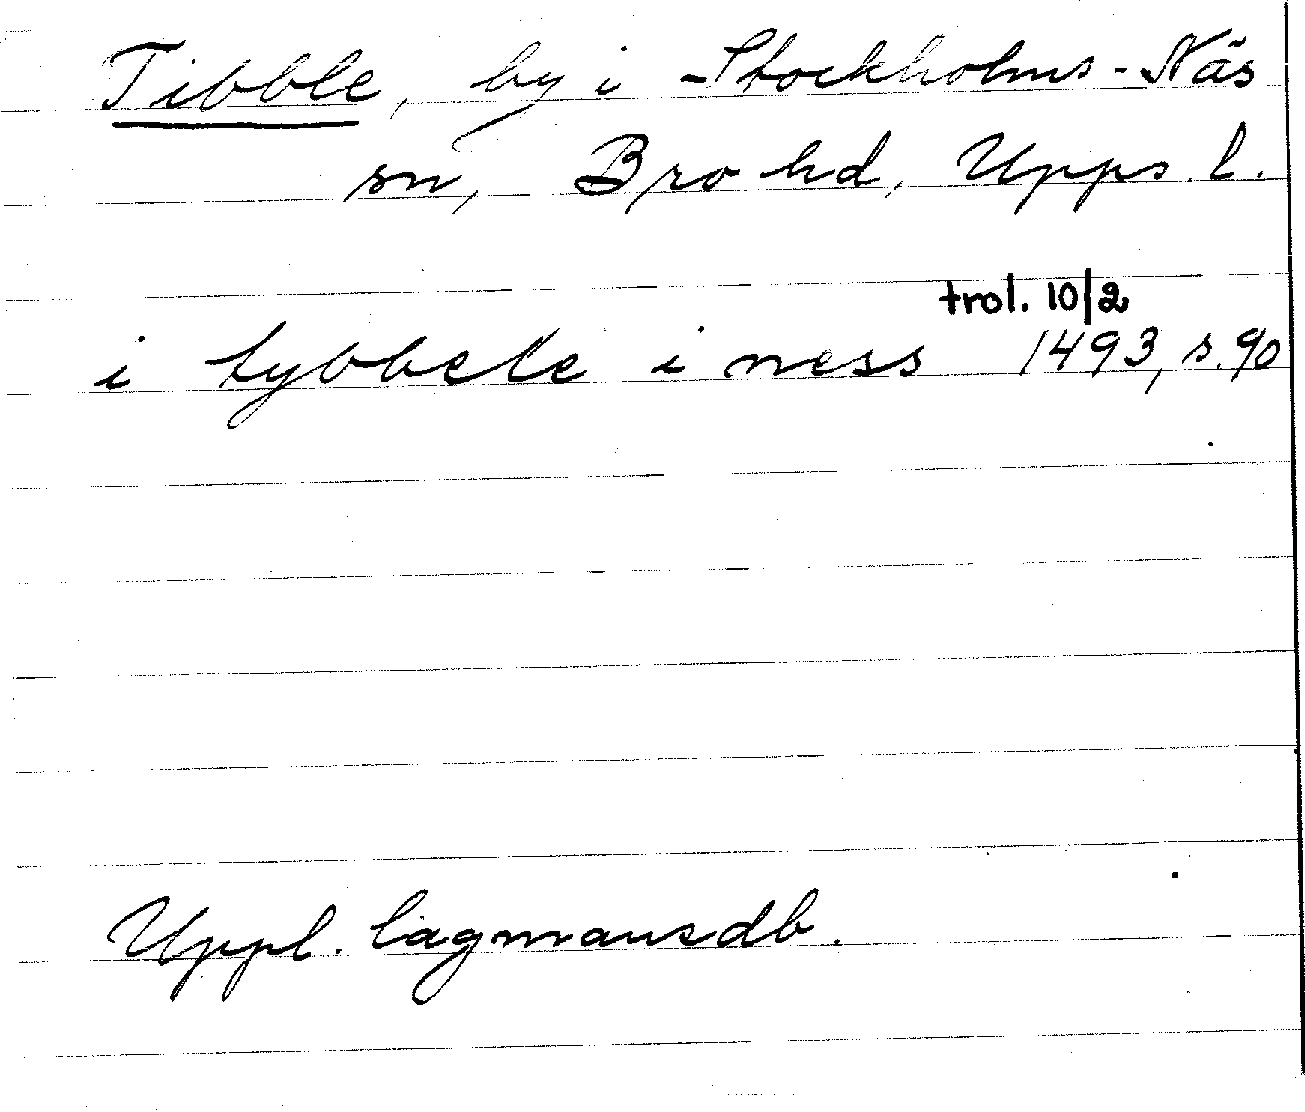 Tibble, by i Stockholms-Näs
sn, Bro hd, Upps. l.
trol. 10/2
i tybbele i ness 1493, s. 90
Uppl. lagmansdb.